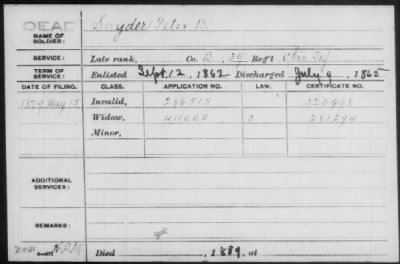 DEAD
NAME OF SOLDIER: Snyder, Peter B.
SERVICE: Late rank, Co. B, 39 Reg't Ohio Inf
TERM OF SERVICE: Enlisted Sept. 12, 1862 Discharged July 9, 1865
DATE OF FILING. CLASS. APPLICATION NO. LAW. CERTIFICATE NO.
1879 May 15 Invalid, 286515 320998
Widow, 411005 281294
Minor,
ADDITIONAL SERVICES:
REMARKS:
Died , 1889, at